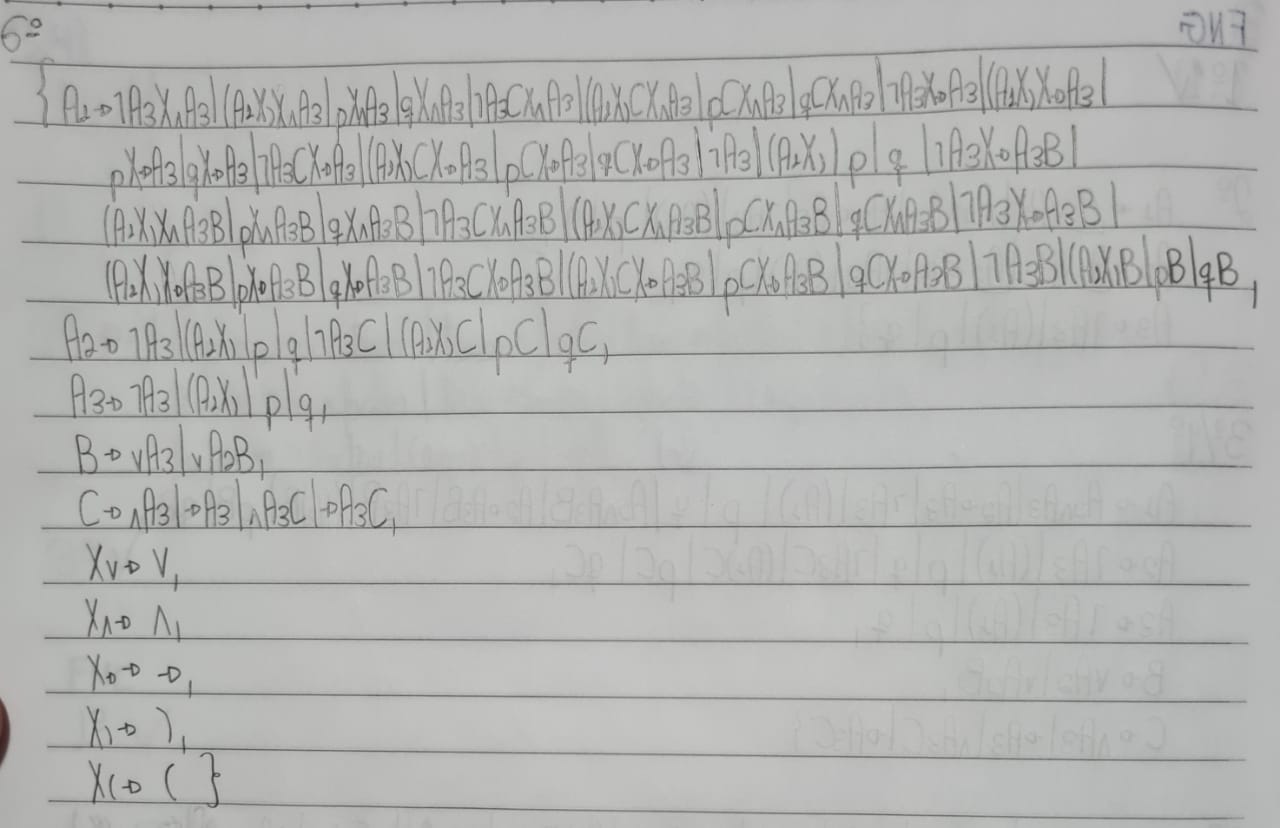 6º
FNG
{ A₂→¬A₃X∧A₃|(A₂X₎X∧A₃|pX∧A₃|qX∧A₃|¬A₃CX∧A₃|(A₂X₎CX∧A₃|pCX∧A₃|qCX∧A₃|¬A₃X→A₃|(A₂X₎X→A₃|
pX→A₃|qX→A₃|¬A₃CX→A₃|(A₂X₎CX→A₃|pCX→A₃|qCX→A₃|¬A₃|(A₂X₎|p|q|¬A₃X→A₃B|
(A₂X₎X∧A₃B|pX∧A₃B|qX∧A₃B|¬A₃CX∧A₃B|(A₂X₎CX∧A₃B|pCX∧A₃B|qCX∧A₃B|¬A₃X→A₃B|
(A₂X₎X→A₃B|pX→A₃B|qX→A₃B|¬A₃CX→A₃B|(A₂X₎CX→A₃B|pCX→A₃B|qCX→A₃B|¬A₃B|(A₂X₎B|pB|qB,
A₂→ ¬A₃|(A₂X₎|p|q|¬A₃C|(A₂X₎C|pC|qC,
A₃→ ¬A₃|(A₂X₎|p|q,
B→∨A₃|∨A₂B,
C→∧A₃|→A₃|∧A₃C|→A₃C,
X∨→ ∨,
X∧→ ∧,
X→→ →,
X₎→ ),
X₍→ ( }